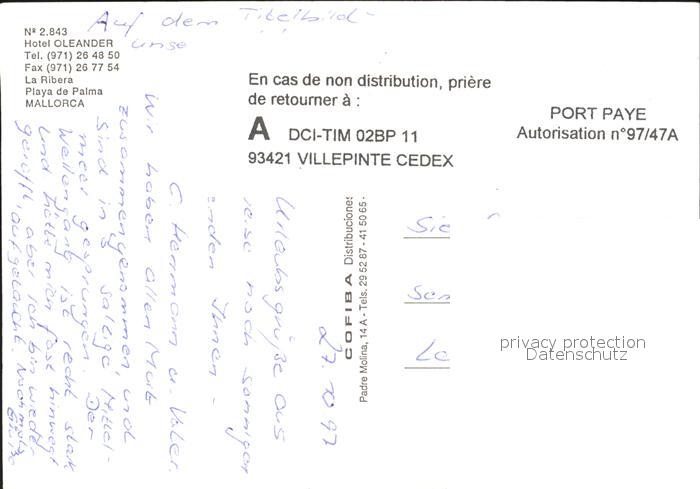 Auf dem Titelbild -
unse
Nº 2.843
Hotel OLEANDER
Tel. (971) 26 48 50
Fax (971) 26 77 54
La Ribera
Playa de Palma
MALLORCA
En cas de non distribution, prière
de retourner à :
A DCI-TIM 02BP 11
93421 VILLEPINTE CEDEX
PORT PAYE
Autorisation n°97/47A
27. 10 97
Urlaubsgrüße aus
noch sonnigen
enden Ihnen -
C. Hermann u. Vater.
Wir haben allen Mut
zusammengenommen, und
sind in's salzige Mittel-
meer gesprungen. Der
Wellengang ist recht stark
und hätte mich fast hinweg
gespült, aber ich bin wieder
aufgetaucht. Nochmals
Grüße
COFIBA Distribuciones
Padre Molina, 14 A - Tels. 29 52 87 - 41 50 65
Sie
Sen
Le
privacy protection
Datenschutz